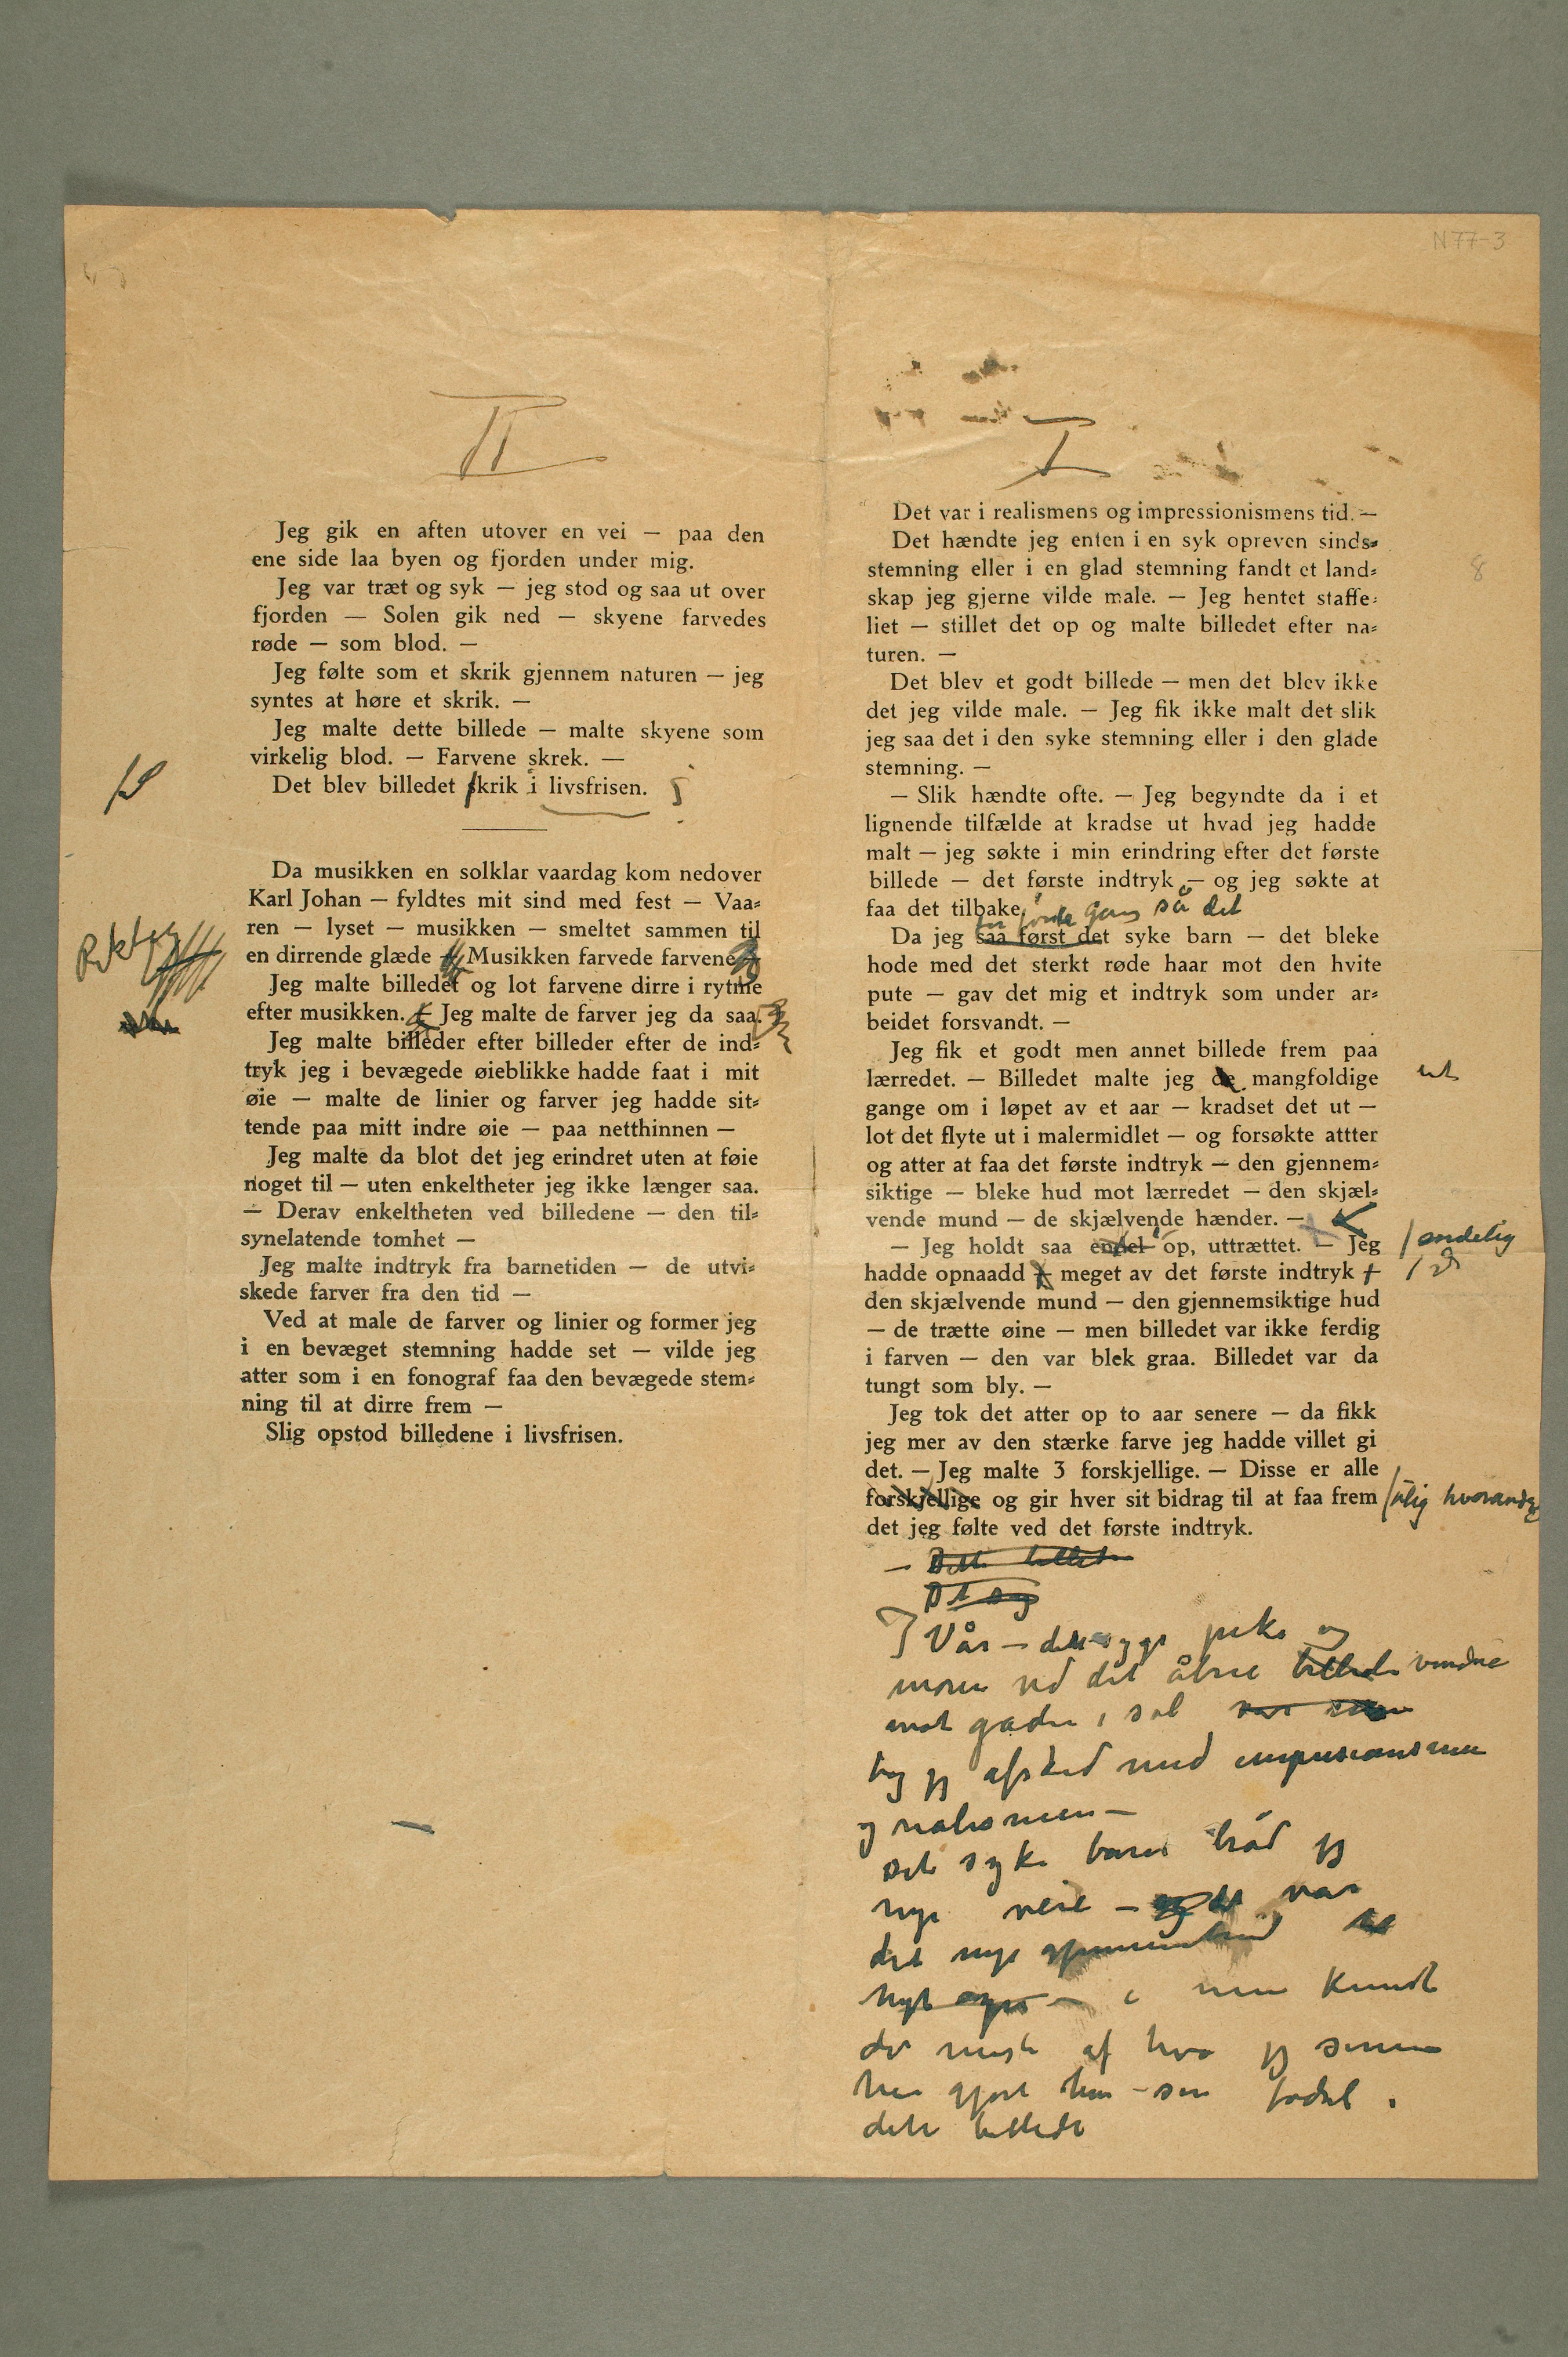 N 77-3
II
Jeg gik en aften utover en vei — paa den
ene side laa byen og fjorden under mig.
Jeg var træt og syk — jeg stod og saa ut over
fjorden — Solen gik ned — skyene farvedes
røde — som blod. —
Jeg følte som et skrik gjennem naturen — jeg
syntes at høre et skrik. —
Jeg malte dette billede — malte skyene som
virkelig blod. — Farvene skrek. —
Det blev billedet skrik i livsfrisen.
Da musikken en solklar vaardag kom nedover
Karl Johan — fyldtes mit sind med fest — Vaa-
ren — lyset — musikken — smeltet sammen til
en dirrende glæde Musikken farvede farvene
Jeg malte billedet og lot farvene dirre i rytme
efter musikken. Jeg malte de farver jeg da saa.
Jeg malte billeder efter billeder efter de ind-
tryk jeg i bevægede øieblikke hadde faat i mit
øie — malte de linier og farver jeg hadde sit-
tende paa mitt indre øie — paa netthinnen —
Jeg malte da blot det jeg erindret uten at føie
noget til — uten enkeltheter jeg ikke længer saa.
— Derav enkeltheten ved billedene — den til-
synelatende tomhet —
Jeg malte indtryk fra barnetiden — de utvi-
skede farver fra den tid —
Ved at male de farver og linier og former jeg
i en bevæget stemning hadde set — vilde jeg
atter som i en fonograf faa den bevægede stem-
ning til at dirre frem —
Slig opstod billedene i livsfrisen.
I
8
Det var i realismens og impressionismens tid. —
Det hændte jeg enten i en syk opreven sinds-
stemning eller i en glad stemning fandt et land-
skap jeg gjerne vilde male. — Jeg hentet staffe-
liet — stillet det op og malte billedet efter na-
turen. —
Det blev et godt billede — men det blev ikke
det jeg vilde male. — Jeg fik ikke malt det slik
jeg saa det i den syke stemning eller i den glade
stemning. —
— Slik hændte ofte. — Jeg begyndte da i et
lignende tilfælde at kradse ut hvad jeg hadde
malt — jeg søkte i min erindring efter det første
billede — det første indtryk — og jeg søkte at
faa det tilbake.
første gang så det
Da jeg saa først det syke barn — det bleke
hode med det sterkt røde haar mot den hvite
pute — gav det mig et indtryk som under ar-
beidet forsvandt. —
Jeg fik et godt men annet billede frem paa
lærredet. — Billedet malte jeg mangfoldige
ut
gange om i løpet av et aar — kradset det ut —
lot det flyte ut i malermidlet — og forsøkte attter
og atter at faa det første indtryk — den gjennem-
siktige — bleke hud mot lærredet — den skjæl-
vende mund — de skjælvende hænder. —
— Jeg holdt saa endel op, uttrættet. — Jeg
/ endelig
hadde opnaadd meget av det første indtryk
den skjælvende mund — den gjennemsiktige hud
— de trætte øine — men billedet var ikke ferdig
i farven — den var blek graa. Billedet var da
tungt som bly. —
Jeg tok det atter op to aar senere — da fikk
jeg mer av den stærke farve jeg hadde villet gi
det. — Jeg malte 3 forskjellige. — Disse er alle
forskjellige og gir hver sit bidrag til at faa frem
/ ulig hverandre
det jeg følte ved det første indtryk.
I Vår — den syge pike og
moren ved det åbne billede vindue
mot gaden i sol
tog jeg afsked med impresionismen
og realismen —
Det syke barn brød jeg
nye veie — var
det nye
nyt i min kunst
det meste af hva jeg senere
har gjort har sin fødsel i
dette billede